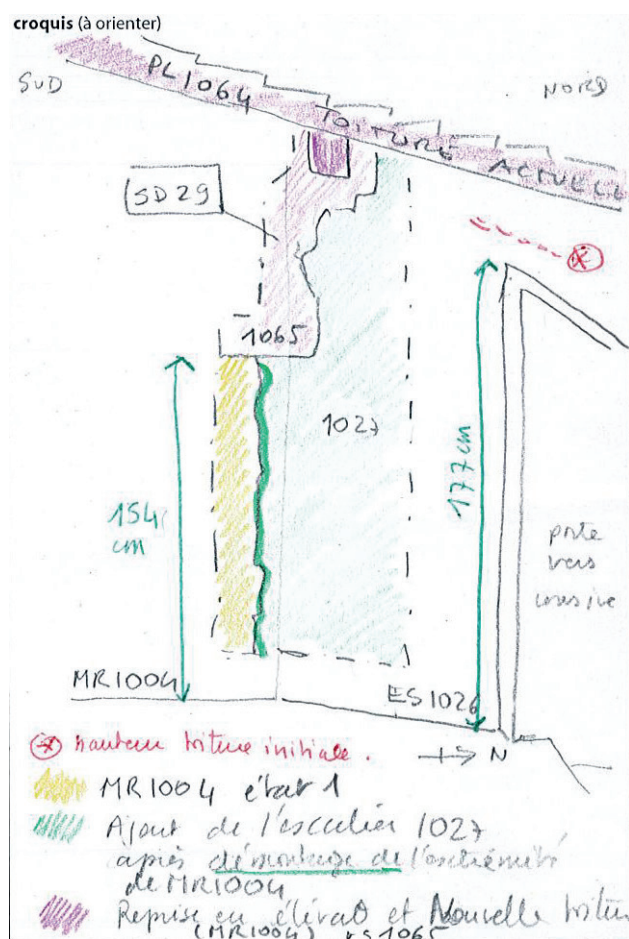 croquis (à orienter)
SUD
NORD
PL1064
TOITURE ACTUELLE
SD29
1065
1027
154 cm
177 cm
porte
vers
coursive
MR1004
ES1026
N
hauteur toiture initiale.
MR1004 état 1
Ajout de l'escalier 1027
après démontage de l'extrémité
de MR1004
Reprise en élévat° et Nouvelle toiture
(MR1004) ES1065